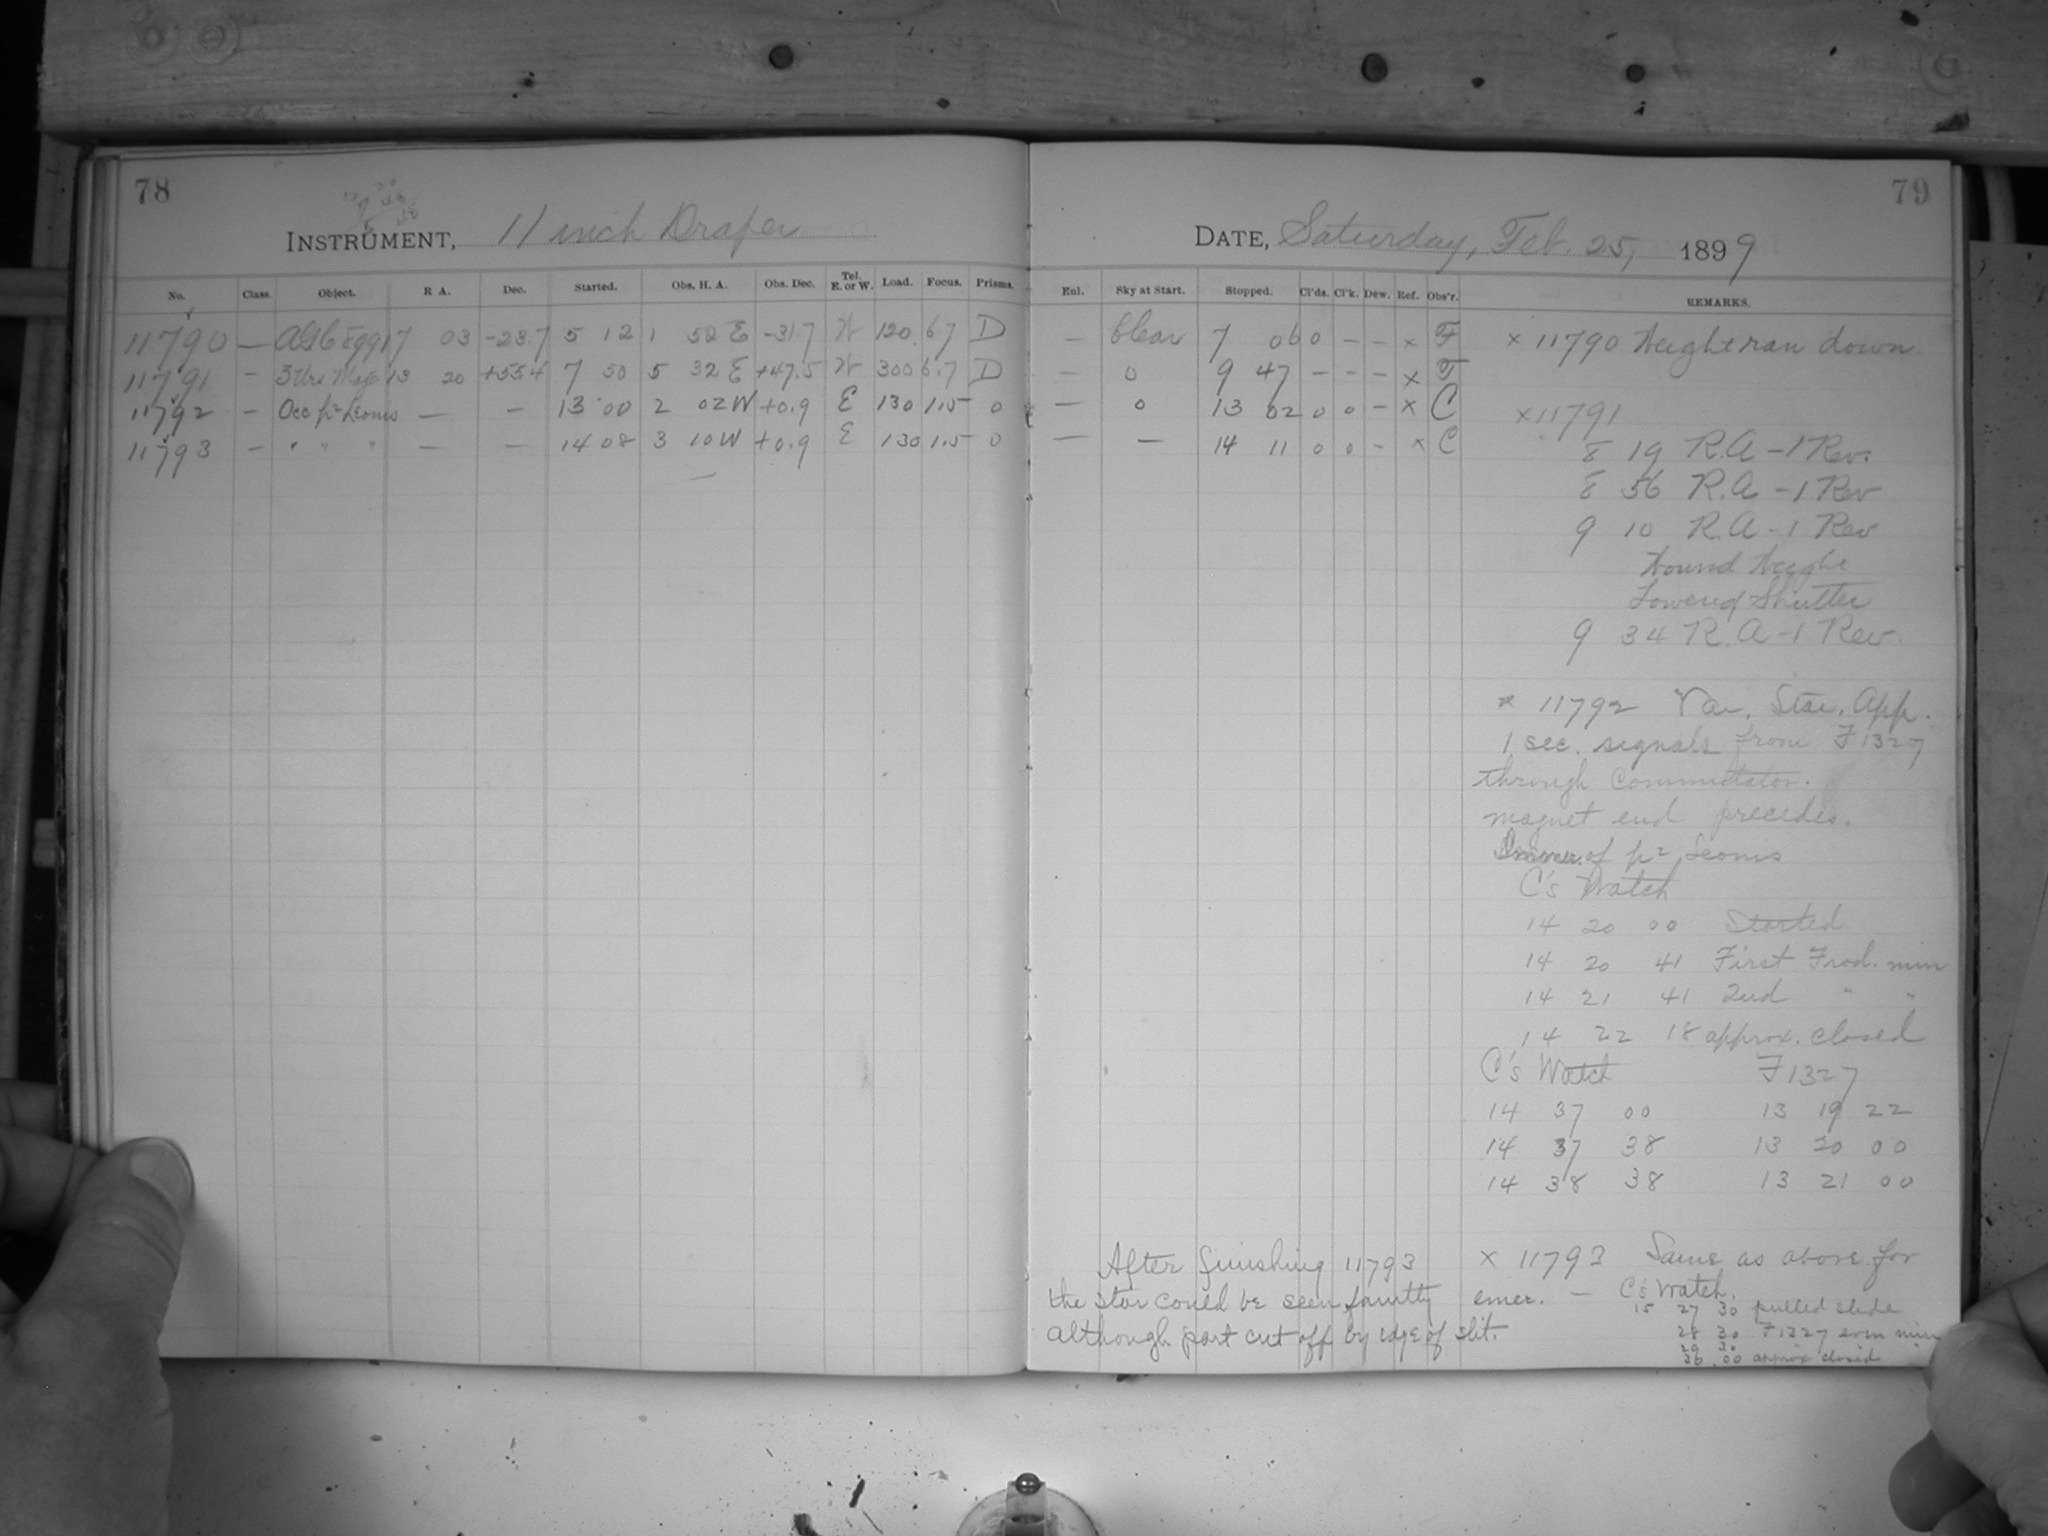 78
INSTRUMENT, 11 inch Draper
No. Class. Object. R A. Dec. Started. Obs. H. A. Obs. Dec. Tel. E. or W. Load. Focus. Prisms.
11790 — 7 03 -23.7 5 12 1 52 E -31.7 W 120 6.7 D
11791 — 13 20 +55.4 7 50 5 32 E +47.5 W 300 6.7 D
11792 — Occ p² Leonis — — 13 00 2 02 W +0.9 E 130 11.5 0
11793 — " " " — — 14 08 3 10 W +0.9 E 130 11.5 0
79
DATE, Saturday, Feb. 25, 1899
Enl. Sky at Start. Stopped. Cl'ds. Cl'k. Dew. Ref. Obs'r. REMARKS.
— Clear 7 06 0 — — x F x 11790 Weight ran down
— 0 9 47 — — — x F
— 0 13 02 0 0 — x C x 11791
— — 14 11 0 0 — x C
8 19 R.A -1 Rev.
8 56 R.A -1 Rev
9 10 R.A -1 Rev
Wound Weight
Lowered Shutter
9 34 R.A -1 Rev.
x 11792 Var. Star. App.
1 sec. signals from F1327
through Commutator.
magnet end precedes.
of p² Leonis
C's Watch
14 20 00 Started
14 20 41 First Frod. min
14 21 41 2nd " "
14 22 18 approx. closed
C's Watch F1327
14 37 00 13 19 22
14 37 38 13 20 00
14 38 38 13 21 00
x 11793 Same as above for
emer. — C's Watch.
15 27 30 pulled slide
28 30 F1327 even min
29 30 "
36 00 approx closed
After finishing 11793
the star could be seen faintly
although part cut off by edge of slit.